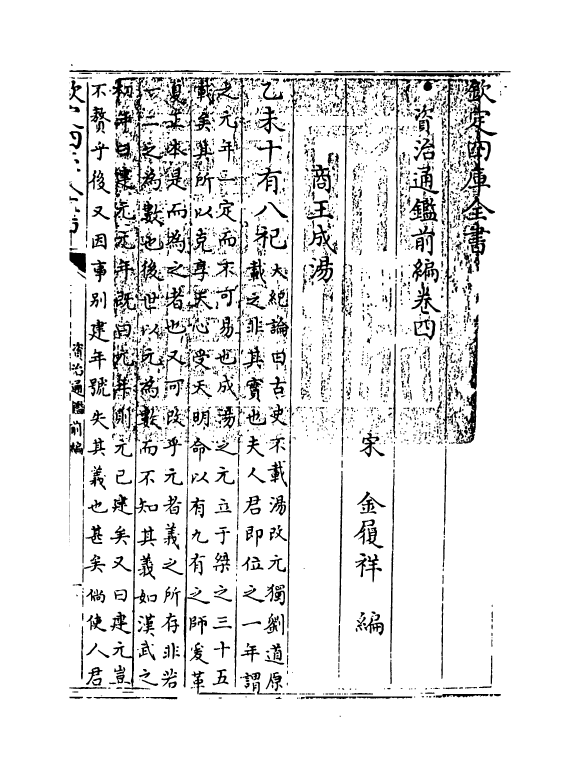 欽定四庫全書
資治通鑑前編卷四
宋 金履祥 編
商王成湯
乙未十有八祀
大紀論曰古史不載湯改元獨劉道原
載之非其實也夫人君即位之一年謂
之元年一定而不可易也成湯之元立于桀之三十五
載矣其所以克享天心受天明命以有九有之師爰革
夏正以是而為之者也又何改乎元者義之所存非若
一二之為數也後世以元為數而不知其義如漢武之
初年曰建元元年既曰元年則元已建矣又曰建元豈
不贅乎後又因事别建年號失其義也甚矣倘使人君
資治通鑑前編
一